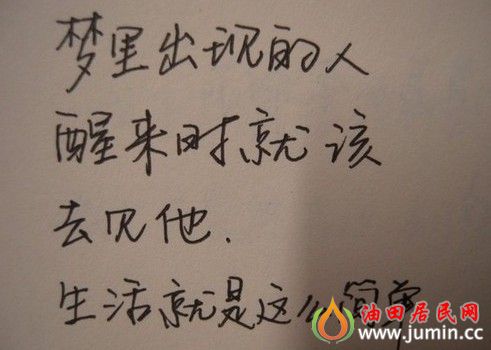 梦里出现的人
醒来时就该
去见他.
生活就是这么简单
油田居民网
www.jumin.cc